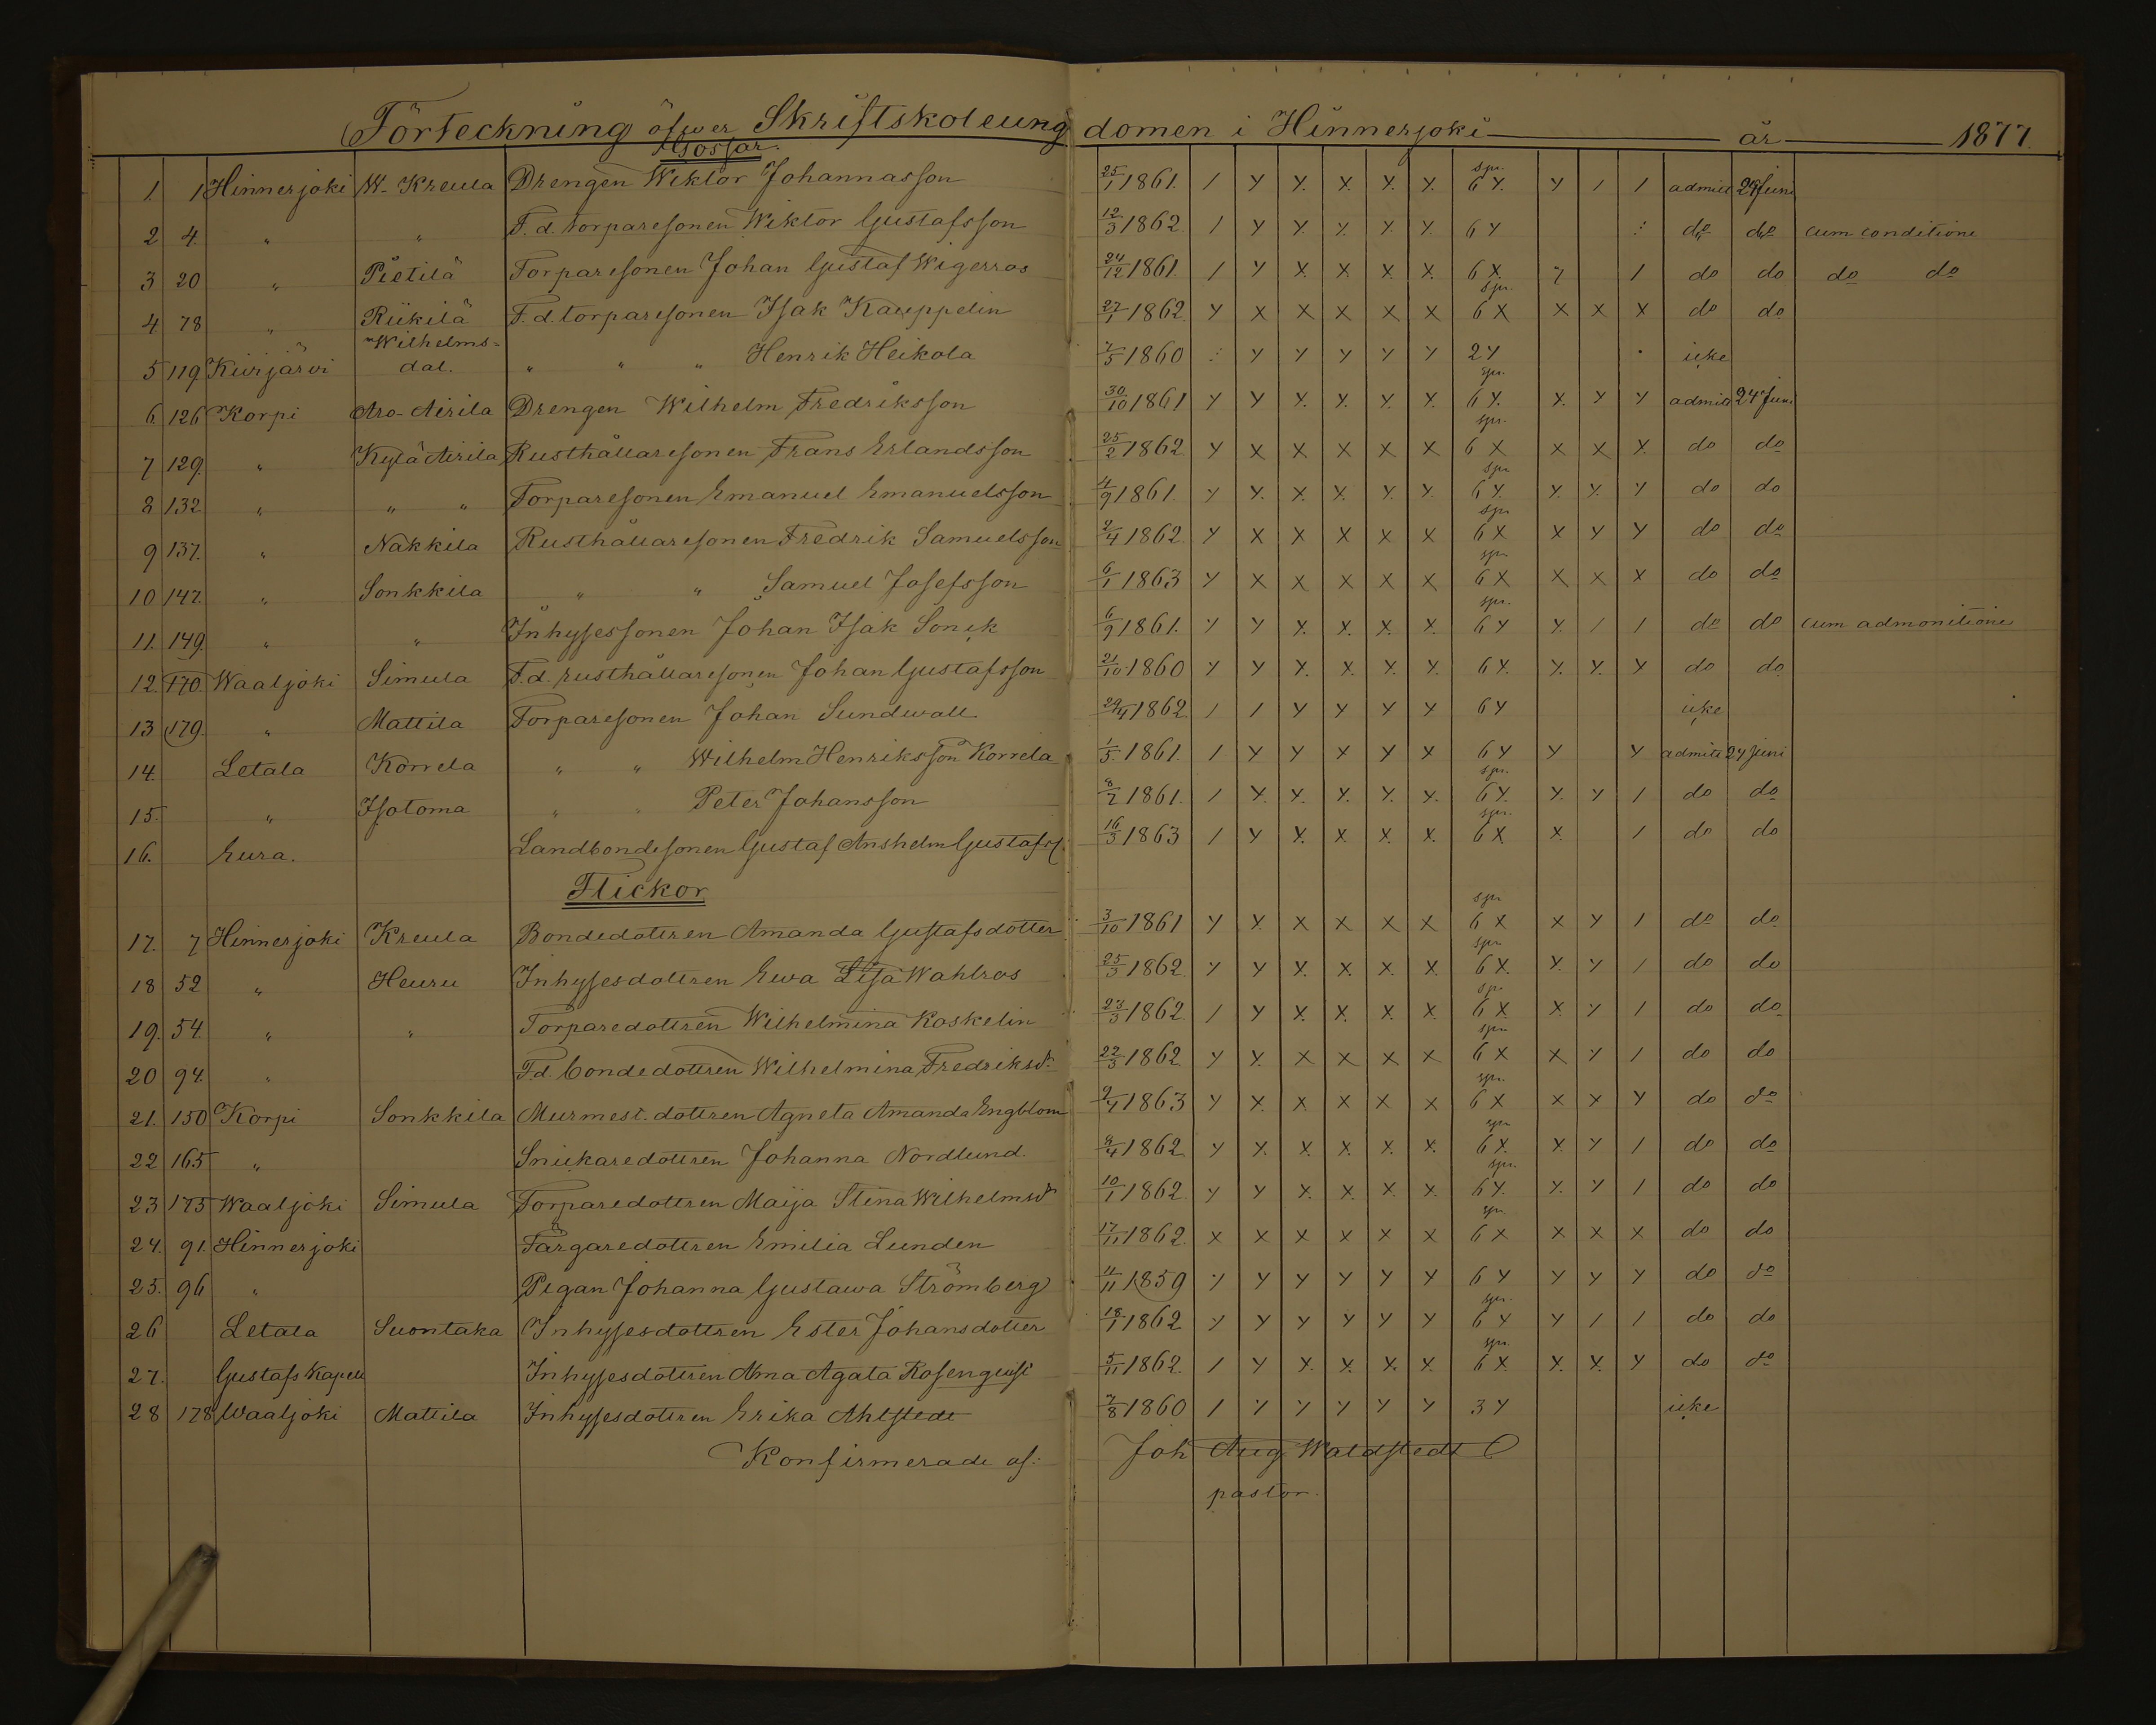 Förteckning öfwer Skriftskoleungdomen i Hinnerjoki år 1877.
Gossar.
1. 1 Hinnerjoki W. Kreula Drengen Wiktor Johannasson 25/1 1861. / y y. x. y. y. spr. 6 y. y / / admitt 24 Juni
2 4. " " F. d. torparesonen Wiktor Gustafsson 12/3 1862. / y y. y. y. y. 6 y do do cum conditione
3 20 " Pietilä Torparesonen Johan Gustaf Wigerros 24/12 1861. / y x. x x. x. 6 x. y / do do do do
4. 78 " Riikilä F. d. torparesonen Isak Kauppelin 27/1 1862. y x x x x x spr. 6 x x x x do do
5 119. Kivijärvi Wilhelms=dal. " " " Henrik Heikola 7/5 1860 y y y y y 2 y icke
6. 126 Korpi Aro-Airila Drengen Wilhelm Fredriksson 30/10 1861 y y y. y. y. y. spr. 6 y. x. y y admitt 24 Juni
7 129. " Kylä Airila Rusthållaresonen Frans Erlandsson 25/2 1862 y x x x x x spr. 6 x x x x do do
8 132 " " " Torparesonen Emanuel Emanuelsson 4/9 1861. y y. x. y. y. y. spr 6 y. y. y. y do do
9 137. " Nakkila Rusthållaresonen Fredrik Samuelsson 2/4 1862. y x x x x x spr 6 x x y y do do
10 147. " Sonkkila " " Samuel Josefsson 6/1 1863 y x x x x x spr 6 x x x x do do
11. 149. " " Inhysessonen Johan Isak Sonck 6/9 1861. y y x. x. x. x. spr. 6 y y. / / do do cum admonitione
12. 170. Waaljoki Simula F. d. rusthållaresonen Johan Gustafsson 21/10 1860 y y y. x. y. y. 6 y. y. y. y do do
13 179. " Mattila Torparesonen Johan Sundwall 29/4 1862. / / y y y y 6 y icke
14. Letala Korrela " " Wilhelm Henriksson Korrela 1/5 1861. / y y x y x 6 y y y admitt 24 Juni
15. " Isotoma " " Peter Johansson 8/2 1861. / y. y. y. y. y. spr. 6 y. y. y / do do
16. Eura. Landbondesonen Gustaf Anshelm Gustafss. 16/3 1863 / y x. x. x. x. spr. 6 x x / do do
Flickor
17. 7 Hinnerjoki Kreula Bondedottren Amanda Gustafsdotter 3/10 1861 y y x x x x spr 6 x x y / do do
18 52 " Heuru Inhysesdottren Ewa Lisa Wahlros 25/3 1862. y y x. x x. x. spr 6 x. y. y / do do
19. 54. " " Torparedottren Wilhelmina Koskelin 23/3 1862. / y x. x. x. x. spr 6 x x y / do do
20 94. " F.d. bondedottren Wilhelmina Fredriksdr 22/3 1862 y y. x x x x spr 6 x x y / do do
21. 150 Korpi Sonkkila Murmest. dottren Agneta Amanda Engblom 9/4 1863 y x. x x x x spr. 6 x x x y do do
22 165 " Snickaredottren Johanna Nordlund. 8/4 1862 y x. x. x. x. x. spr 6 x. x. y / do do
23 175 Waaljoki Simula Torparedottren Maija Stina Wilhelmsdr 10/1 1862. y y x. x. x. x. spr. 6 y. y. y / do do
24. 91. Hinnerjoki Färgaredottren Emilia Lunden 17/11 1862. x x x x x x spr. 6 x x x x do do
25. 96 " Pigan Johanna Gustawa Strömberg 11/11 1859 y y y y y y 6 y y y y do do
26 Letala Suontaka Inhysesdottren Ester Johansdotter 18/1 1862 y y y y y y spr. 6 y y / / do do
27. Gustafs Kapell Inhysesdottren Alma Agata Rosenquist 5/11 1862. / y x. x. x. x. spr. 6 x x. x. y do do
28 178 Waaljoki Mattila Inhysesdottren Erika Ahlstedt 7/8 1860 / y y y y y 3 y icke
Konfirmerade af: Joh Aug Waldstedt
pastor.